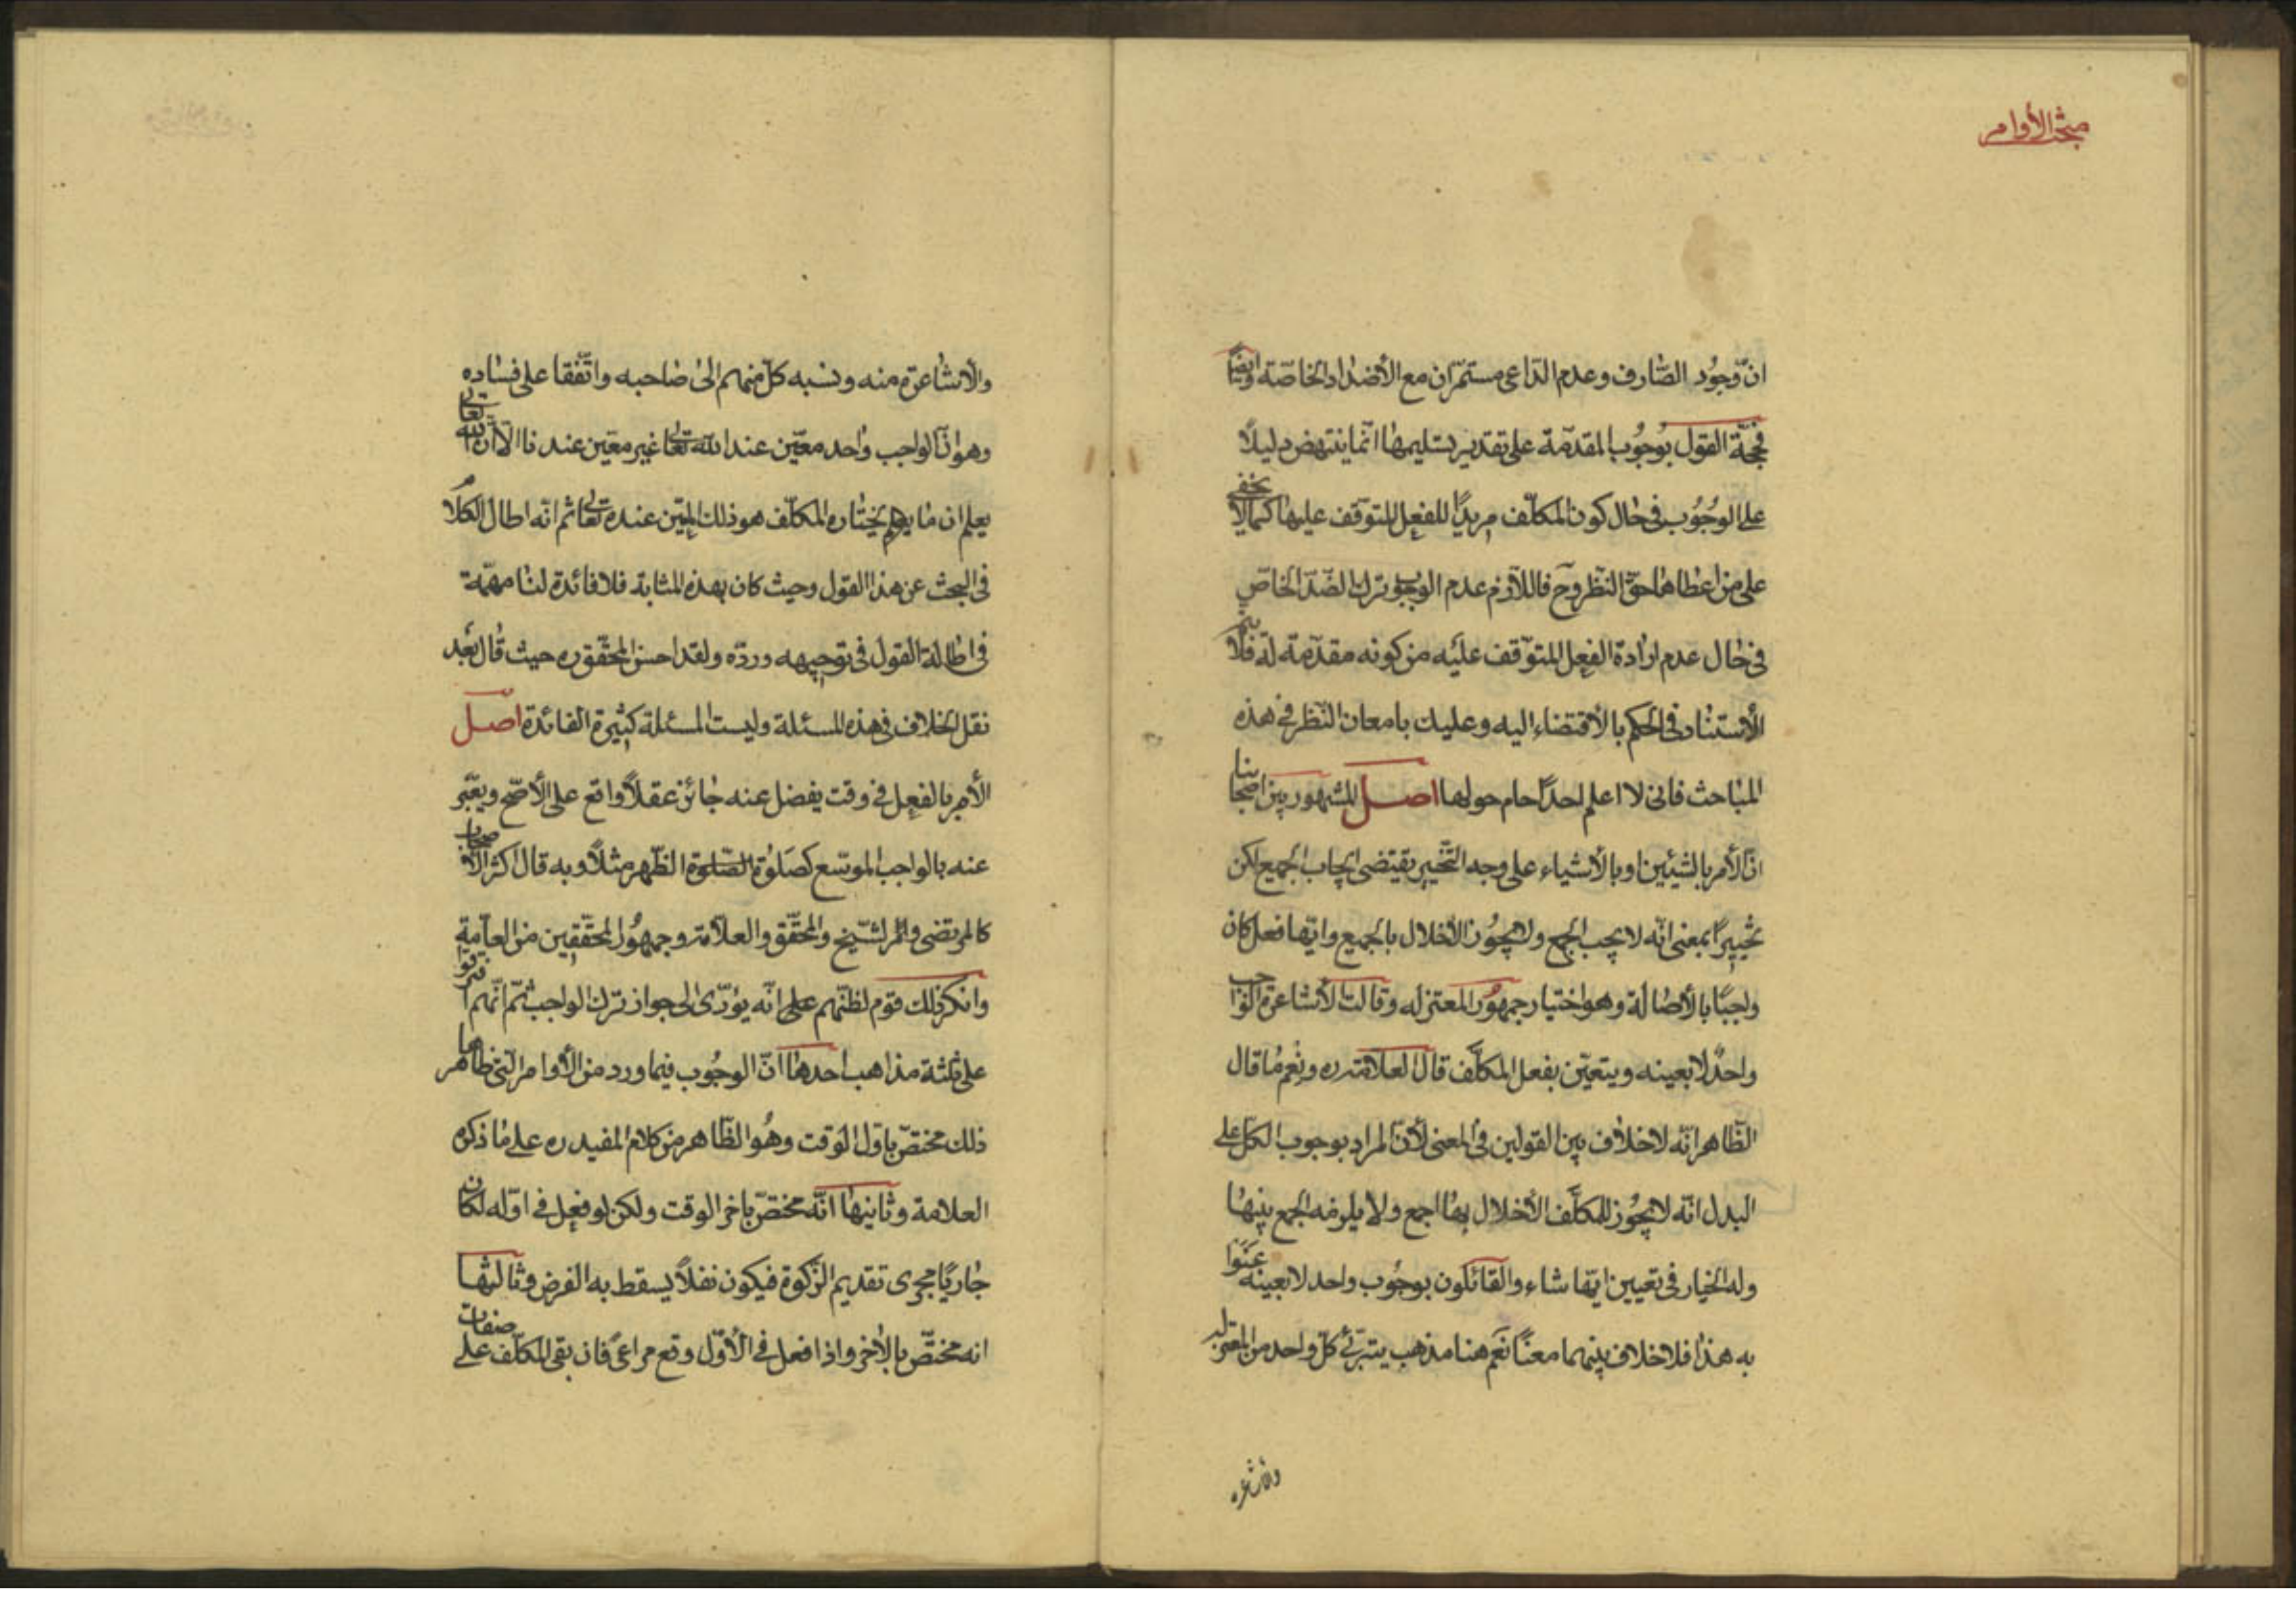 مبحث الأوامر
انّ وجُود الصّارف وعدم الدّاعى مستمرّان مع الأضداد الخاصّة وايضًا
فحجّة القول بوُجُوب المقدّمة على تقدير تسليمها انّما ينتهض دليلًا
على الوجُوب فى حال كون المكلّف مريدًا للفعل المتوقّف عليها كما لا يخفى
على من اعطاها حقّ النّظر وح فاللّازم عدم الوجوب ترك الضّدّ الخاصّ
فى حال عدم ارادة الفعل المتوقّف عليه من كونه مقدّمة له فلا يتم
الأستناد فى الحكم بالأقتضاء اليه وعليك بامعان النّظر فى هذه
المباحث فانى لا اعلم احدًا حام حولها اصل المشهور بين اصحابنا
انّ الأمر بالشيئين او بالأشياء على وجه التّخيير يقتضى ايجاب الجميع لكن
تخييرًا بمعنى انّه لا يجب الجمع ولا يجُوز الأخلال بالجميع وايّها فعل كان
واجبًا بالأصالة وهو اختيار جمهور المعتزله وقالت الأشاعرة الواجب
واحدٌ لا بعينه ويتعيّن بفعل المكلّف قال العلامة ره ونعم ما قال
الظّاهر انّه لا خلاف بين القولين فى المعنى لأنّ المراد بوجوب الكل على
البدل انّه لا يجُوز للمكلّف الأخلال بها اجمع ولا يلزمه الجمع بينها
وله الخيار فى تعيين ايّها شاء والقائلون بوجُوب واحد لا بعينه عنوا
به هذا فلا خلاف بينهما معنًا نعم هنا مذهب يتبرّئ كلّ واحد من المعتزله
والأشاعره
والأشاعرة منه ونسبه كلّ منهم الى صاحبه واتّفقا على فساده
وهو انّ الواجب واحد معيّن عند اللّه تعالى غير معيّن عندنا الّا انّ اللّه تعالى
يعلم ان ما يعلم يختاره المكلّف هو ذلك المعيّن عنده تعالى ثم انّه اطال الكلام
فى البحث عن هذا القول وحيث كان بهذه المثابة فلا فائدة لنا مهمّة
فى اطالة القول فى توجيهه وردّه ولقد احسن المحقّق ره حيث قال بعد
نقل الخلاف فى هذه المسئلة وليست المسئلة كثيرة الفائدة اصل
الأمر بالفعل فى وقت يفضل عنه جائز عقلًا واقع على الأصّح ويعبّر
عنه بالواجب الموسّع كصلوة الصّلوة الظّهر مثلًا وبه قال اكثر الأصحاب
كالمرتضى والمر الشّيخ والمحقّق والعلّامة وجمهور المحقّقين من العامّة
وانكر ذلك قوم لظنّهم على انّه يؤدّى الى جواز ترك الواجب ثمّ انّهم افترقوا
على ثلثة مذاهب احدها انّ الوجُوب فيما ورد من الأوامر الّتى ظاهرها
ذلك مختصّ باوّل الوقت وهو الظّاهر من كلام المفيد ره على ما ذكره
العلامة وثانيها انّه مختصّ باخر الوقت ولكن لو فعل فى اوّله لكان
جاريًا مجرى تقديم الزّكوة فيكون نفلًا يسقط به الفرض وثالثها
انه مختصّ بالأخر واذا فعل فى الأوّل وقع مراعى فان بقى المكلّف على صفات